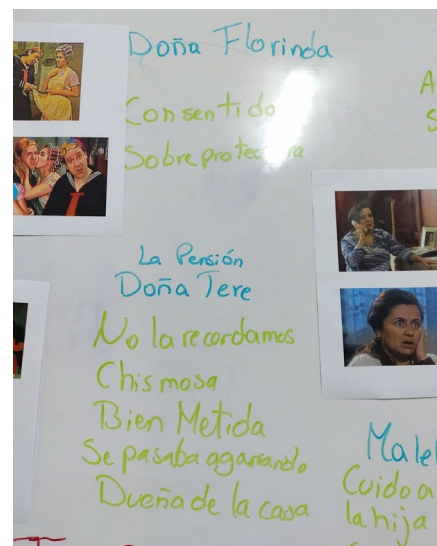 Doña Florinda
Consentido
Sobreprotectora
La Pensión
Doña Tere
No la recordamos
Chismosa
Bien Metida
Se pasaba agarrando
Dueña de la casa
A
S
Malel
Cuido a
la hija